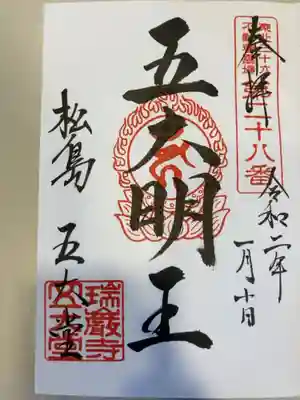 奉拝
第二十八番
令和二年
一月十日
五大明王
松島 五大堂
瑞巌寺
五大堂